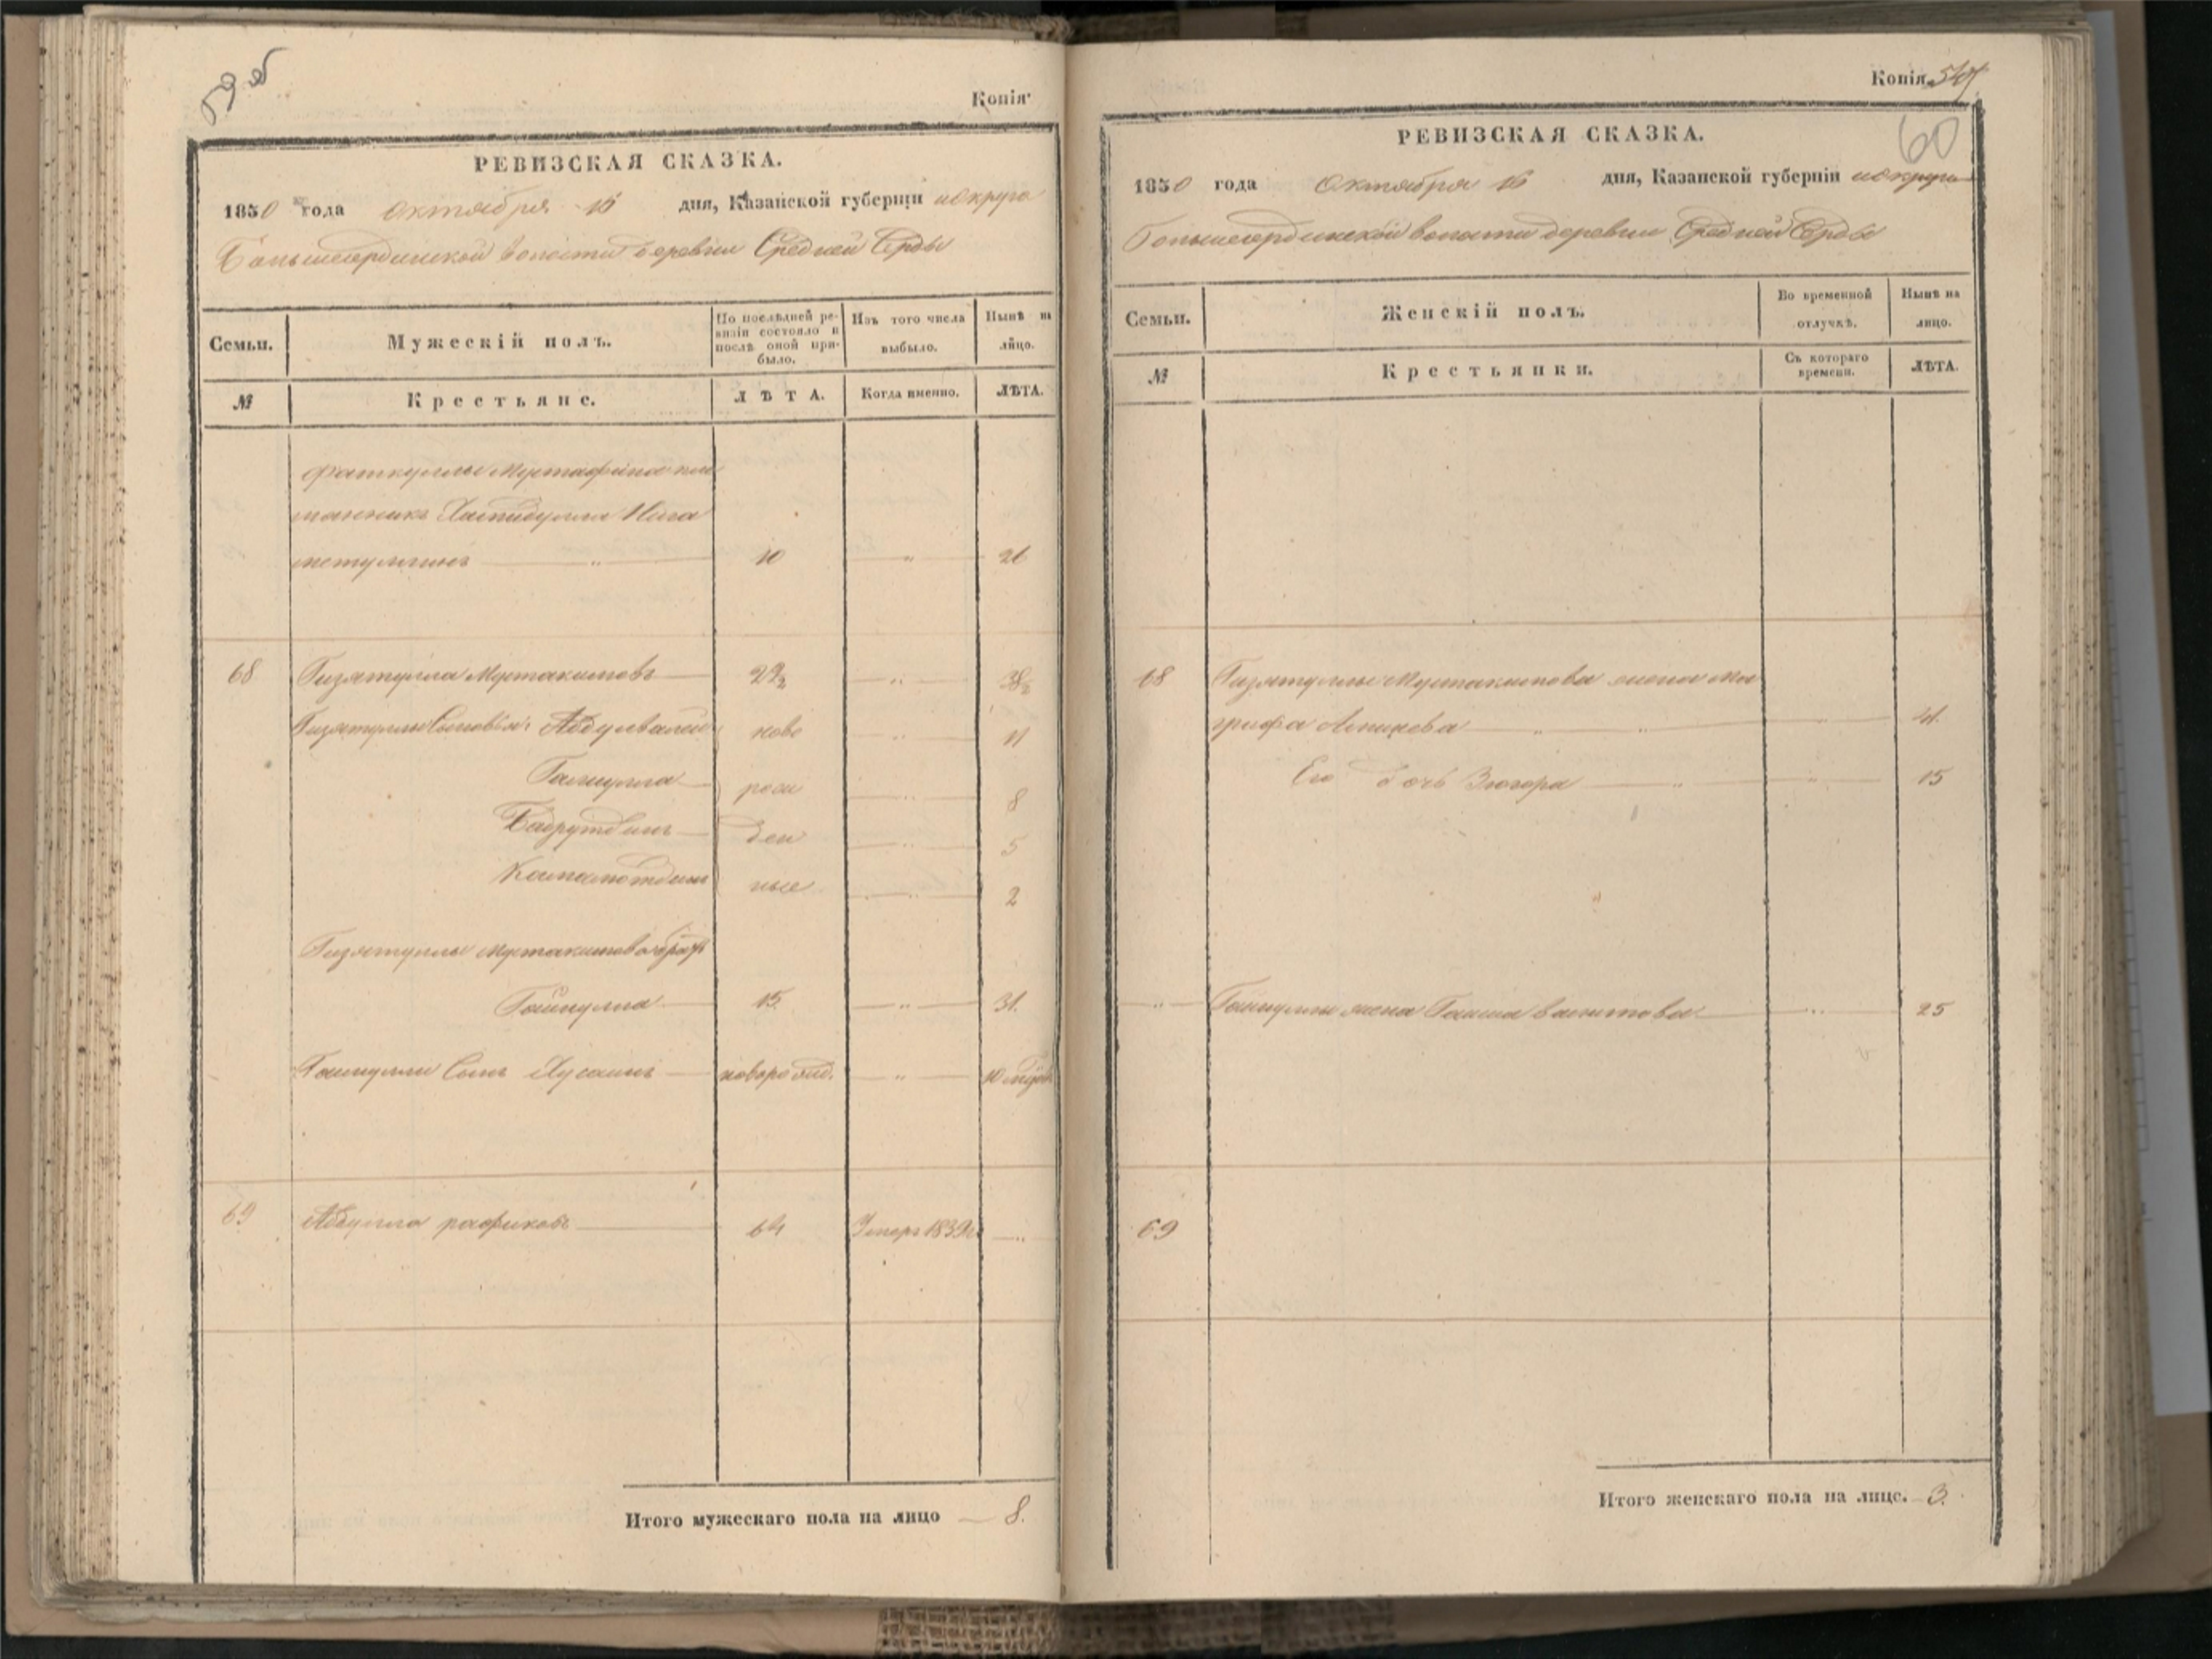 59 об
Копія
РЕВИЗСКАЯ СКАЗКА.
1850 года октября 16 дня, Казанской губерніи и округа
Большесердинской волости деревни Средней Серды
Семьи.
Мужескій полъ.
По послѣдней ревизіи состояло и послѣ оной прибыло.
Изъ того числа выбыло.
Нынѣ на лицо.
№
Крестьяне.
ЛѢТА.
Когда именно.
ЛѢТА.
Фаткуллы Мустафина пле
мянникъ Хамидулла Нига
метуллинъ " 10 " 26
68 Гизятулла Мустакимовъ 22½ " 38½
Гизятуллы Сыновья: Абдулвалей ново " 11
Галиулла рож " 8
Бадрутдинъ ден " 5
Камалютдинъ ные " 2
Гизятуллы Мустакимова братъ
Гайнулла 15 " 31.
Гайнуллы Сынъ Хусаинъ новорожд. "
69 Абдулла рафиковъ 64 Умеръ 1839 г. "
Итого мужескаго пола на лицо 8.
Копія
60
РЕВИЗСКАЯ СКАЗКА.
1850 года октября 16 дня, Казанской губерніи и округа
Большесердинской волости деревни Средней Серды
Семьи.
Женскій полъ.
Во временной отлучкѣ.
Нынѣ на лицо.
№
Крестьянки.
Съ котораго времени.
ЛѢТА.
68 Гизятуллы Мустакимова жена Ма
грифа " " " 41.
Его дочь Зюгора " " 15
" Гайнуллы жена Гаиша " 25
69
Итого женскаго пола на лице. 3.